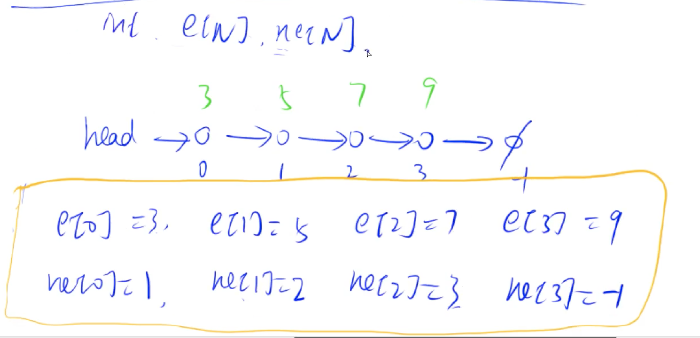 int e[N], ne[N],
3 5 7 9
head →0→0→0→0→∅
0 1 2 3 -1
e[0]=3, e[1]=5 e[2]=7 e[3]=9
ne[0]=1, ne[1]=2 ne[2]=3 ne[3]=-1